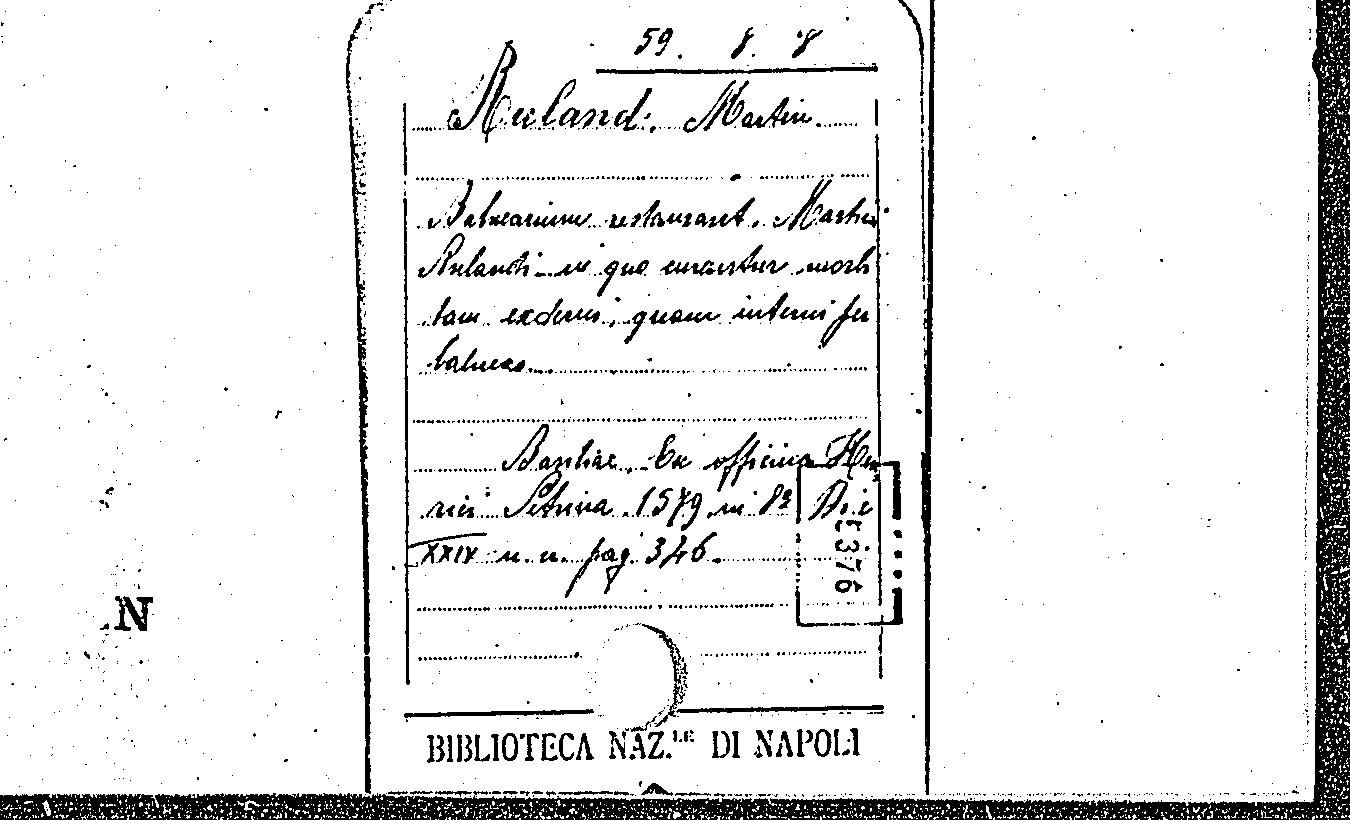 59. 8. 8
Ruland. Martin.
Balnearium restaurant. Martini
Rulandi in quo curantur morbi
tam externi, quam interni per
balneas
Basileae. Ex officina Hen
rici Petrina 1579 in 8º Di
XXIX n. n. pag. 346.
5376
N
BIBLIOTECA NAZ.LE DI NAPOLI